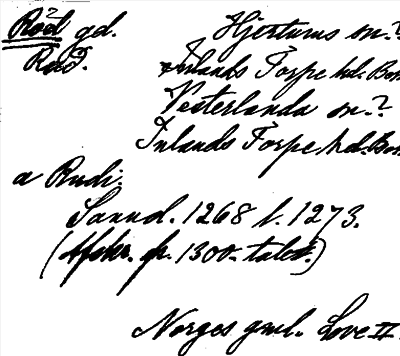 Röd² gd. Hjertums sn.?
Röd². Inlands Torpe hd. Boh
Vesterlanda sn.?
Inlands Torpe hd. Boh
a Rudi.
Sannd. 1268 f. 1273.
(Afskr. fr. 1300-talet.)
Norges gml. Love II.